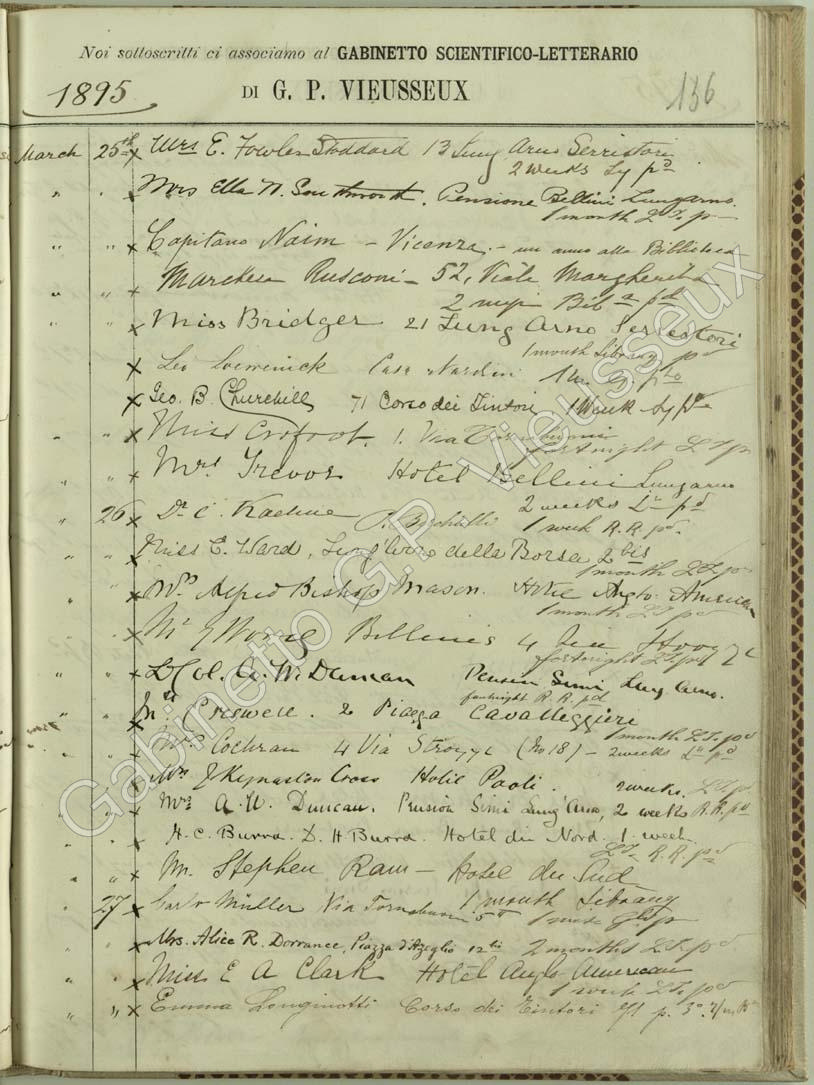 Noi sottoscritti ci associamo al GABINETTO SCIENTIFICO-LETTERARIO
1895 DI G. P. VIEUSSEUX 136
March 25th x Mrs E. Fowler Stoddard 13 Lung Arno Serristori
2 weeks Ly pd
" " x Mrs Ella N. Southworth. Pensione Bellini Lungarno.
1 month L.T. p
" " x Capitano Naim - Vicenza - un anno alla Biblioteca
" " x Marchesa Rusconi - 52, Viale Margherita
2 Bib pd
" x Miss Bridger 21 Lung Arno Serristori
1 month Library pd
x Leo Casa Nardini
x Geo. B. Churchill 71 Corso dei Tintori 1 Week Ly pd
" " x Miss Crofoot. 1. Via Tornabuoni
fortnight L T p
" " x Mrs Trevor Hotel Bellini Lungarno
2 weeks Ly pd
" 26 x Dr C.
1 week R.R. pd.
" " x Miss E. Ward, Lung'Arno della Borsa 2 bis
1 month L T p
" " x Mrs Alfred Bishop Mason. Hotel Anglo-American
1 month L T pd
" " x Mr J Bellini's 4
fortnight L T pd
" " x Col. A. W. Duncan Pension Simi Lung Arno.
fortnight R.R. pd
" " x Creswell. 2 Piazza Cavalleggieri
1 month L.T. pd
" " x Mrs Cochran 4 Via Strozzi (No 18) - 2 weeks Ly pd
" " x Mrs J Kynaston Cross Hotel Paoli. 2 weeks. L T p
" x Mrs A. W. Duncan. Pension Simi Lung'Arno, 2 weeks R.R. pd
H. C. Burra. D. H Burra. Hotel du Nord. 1 week
L.T. R.R. pd
" x Mr. Stephen Ram - Hotel du Sud
1 month Library
" 27 x Carlo Müller Via Tornabuoni 5
" x Mrs. Alice R. Dorrance, Piazza d'Azeglio 12 bis 2 months L.T. pd
" " x Miss E A Clark Hotel Anglo American
1 week L T pd
" " x Emma Longinotti Corso dei Tintori
Gabinetto G.P. Vieusseux